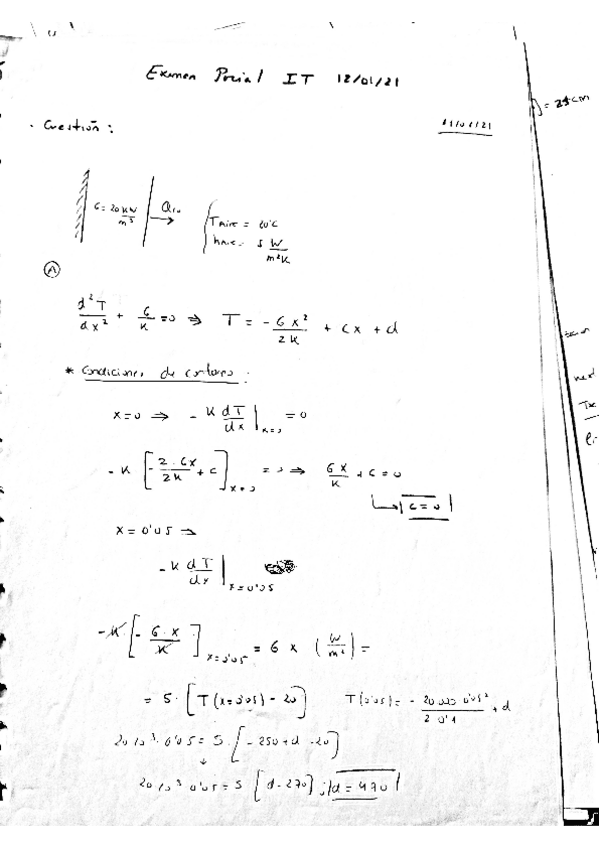 Examen Parcial IT 12/01/21
= 25cm
- Cuestión:
11/01/21
G = 20 KW/m³
T aire = 20°C
h aire = 5 W/m²K
A
d²T/dx² + G/K = 0 ⇒ T = - G x²/2K + Cx + d
* Condiciones de contorno:
x=0 ⇒ - K dT/dx |x=0 = 0
- K [- 2·Gx/2K + C] x=0 = 0 ⇒ Gx/K + C = 0
C = 0
x = 0'05 ⇒
- K dT/dx | x=0'05
- K [- G·x/K] x=0'05 = G x (W/m²) =
= 5 · [T(x=0'05) - 20] T(0'05) = - 20 000 0'05²/2 0'1 + d
20 10³ · 0'05 = 5 · [- 250 + d - 20]
20 10³ 0'05 = 5 [d - 270] ; d = 470